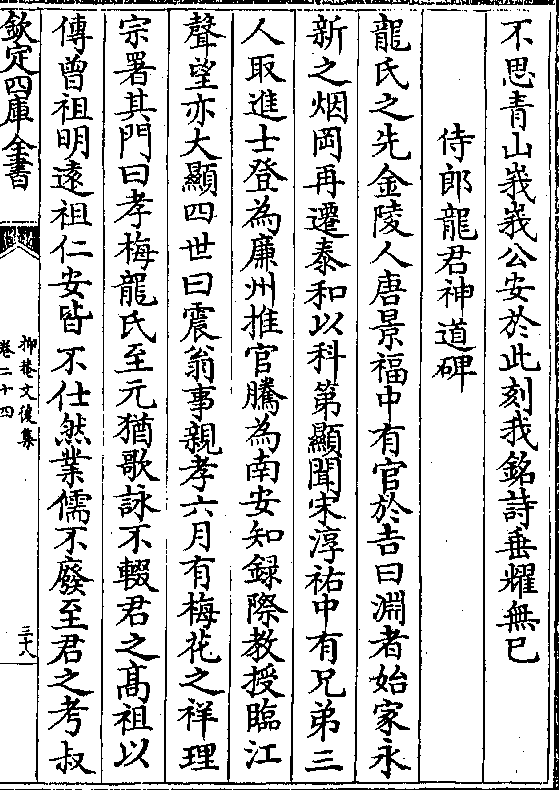 不思青山峩峩公安於此刻我銘詩垂耀無已
侍郎龍君神道碑
龍氏之先金陵人唐景福中有官於吉曰淵者始家永
新之烟岡再遷泰和以科第顯聞宋淳祐中有兄弟三
人取進士登為廉州推官騰為南安知録際教授臨江
聲望亦大顯四世曰震翁事親孝六月有梅花之祥理
宗署其門曰孝梅龍氏至元猶歌詠不輟君之髙祖以
傳曽祖明逺祖仁安皆不仕然業儒不廢至君之考叔
欽定四庫全書
抑菴文後集
卷二十四
三十八